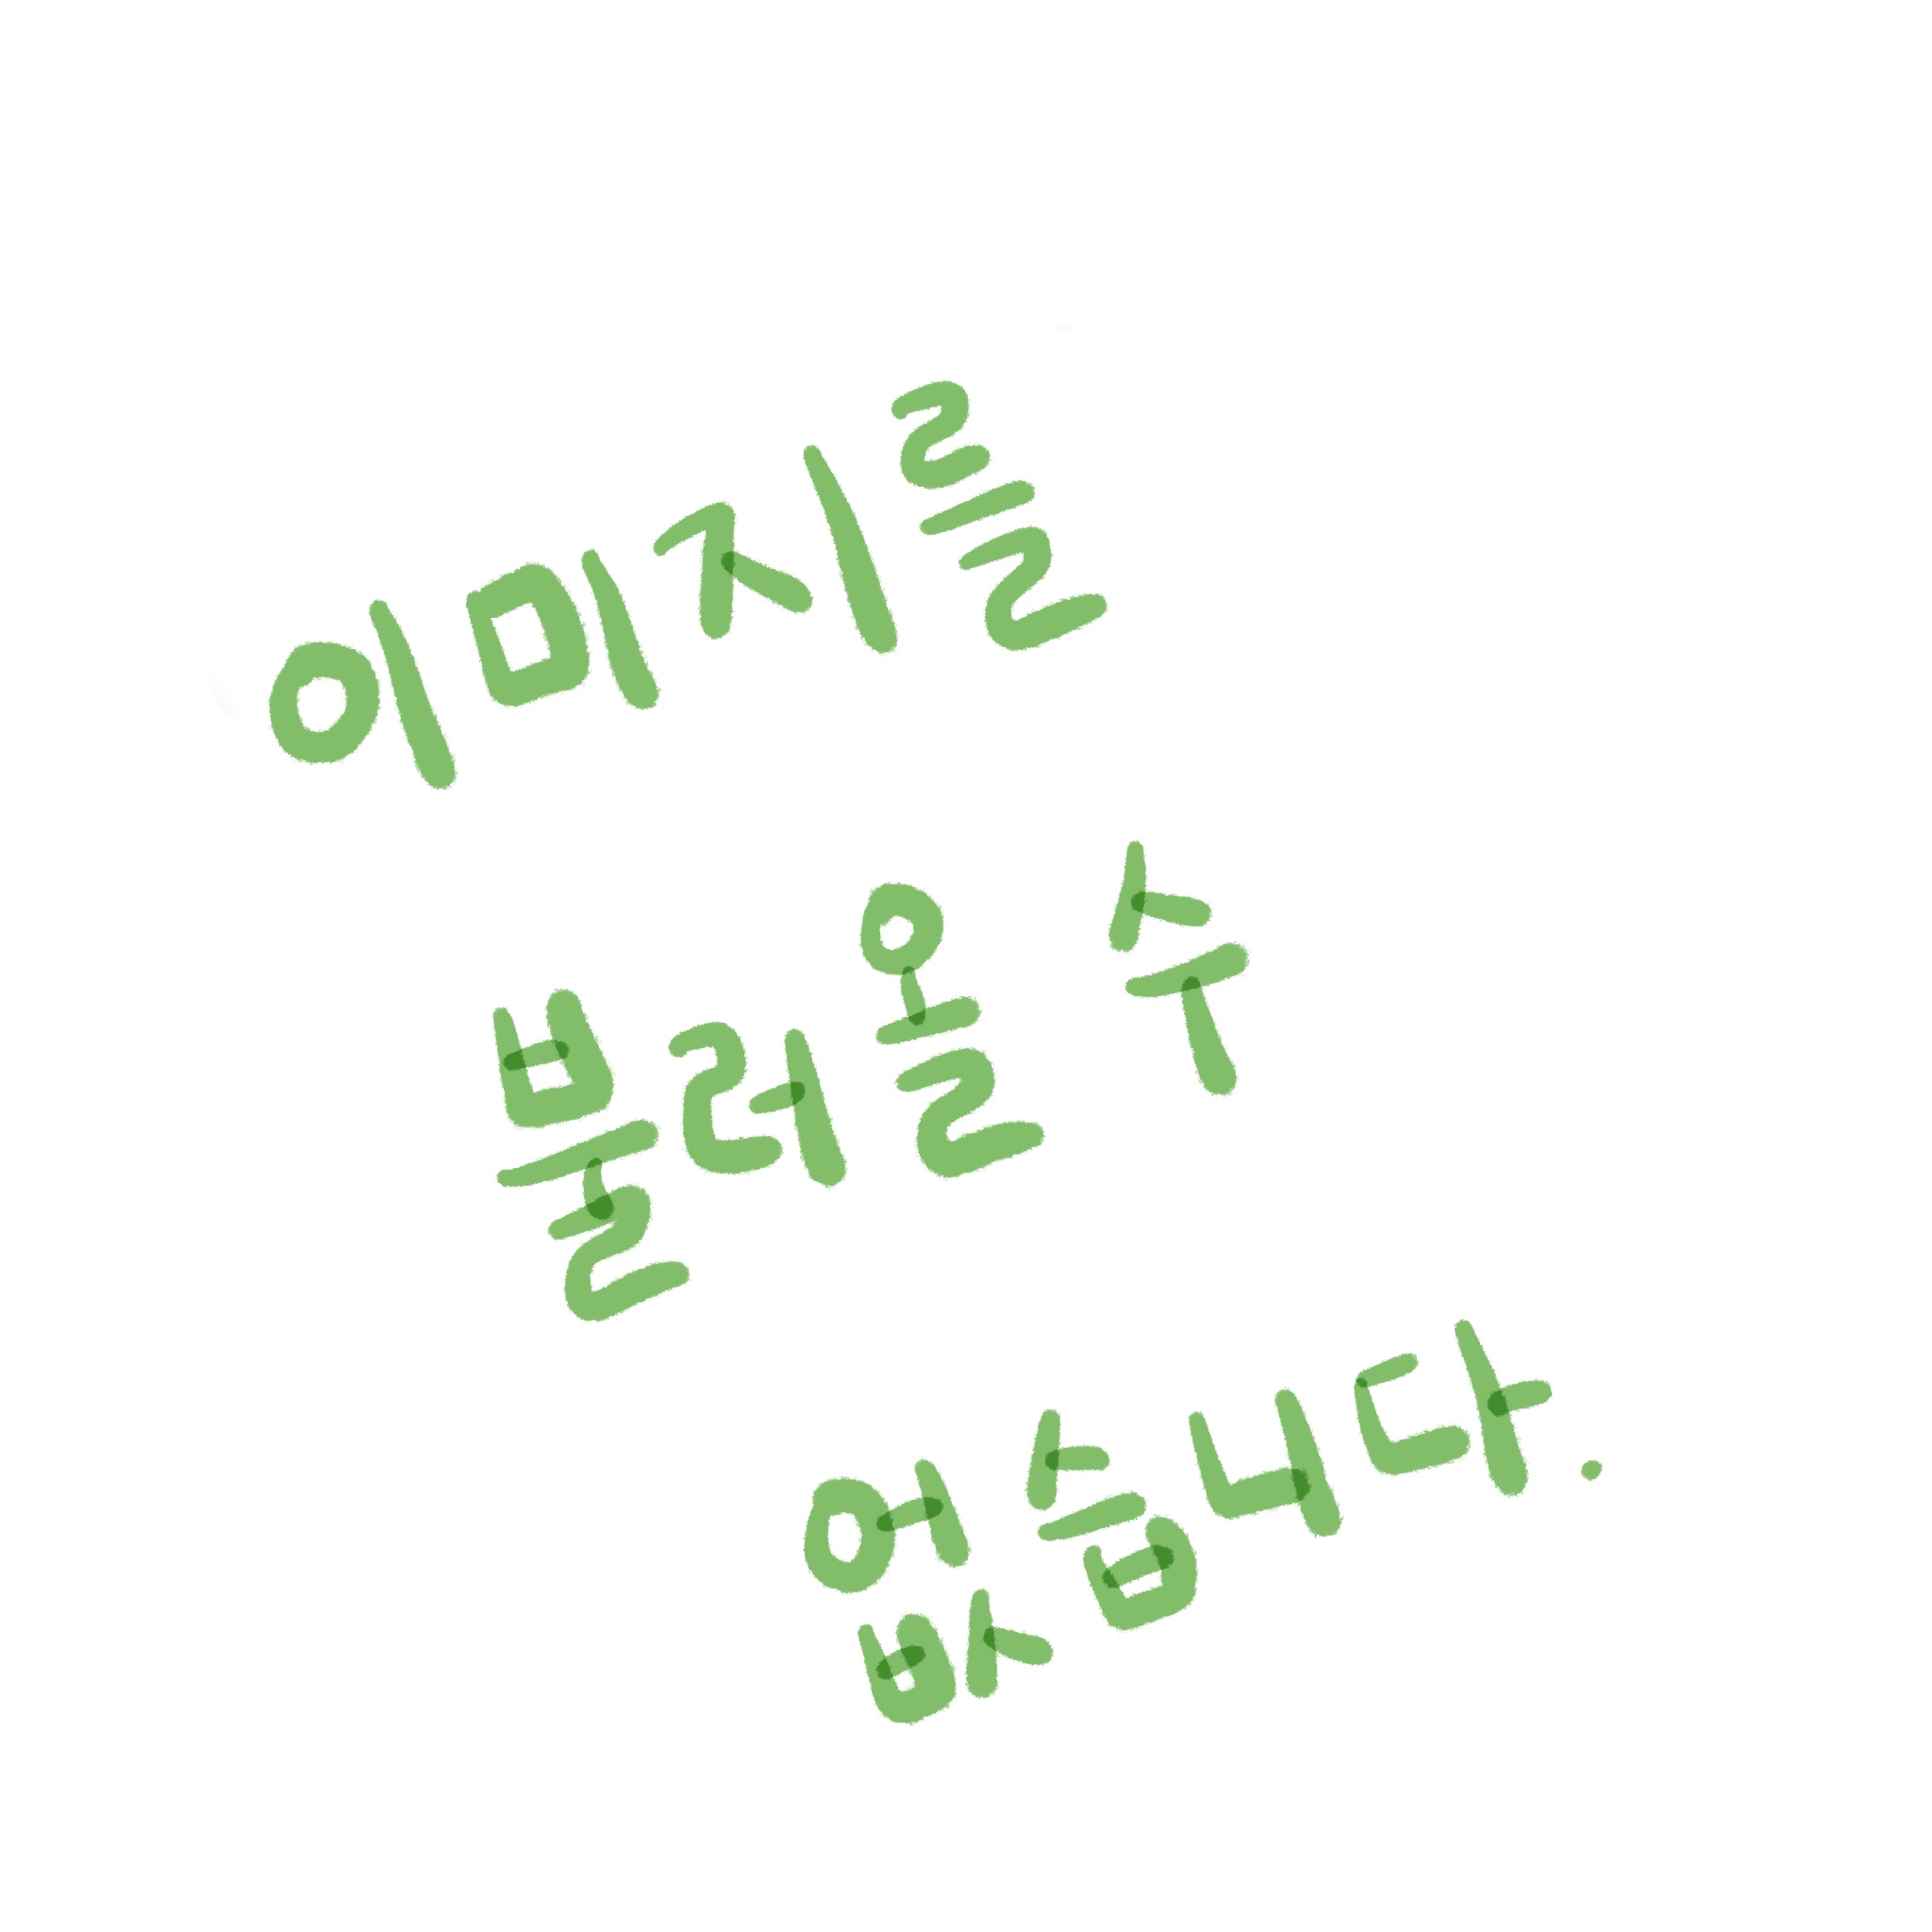 이미지를
불러올 수
없습니다.